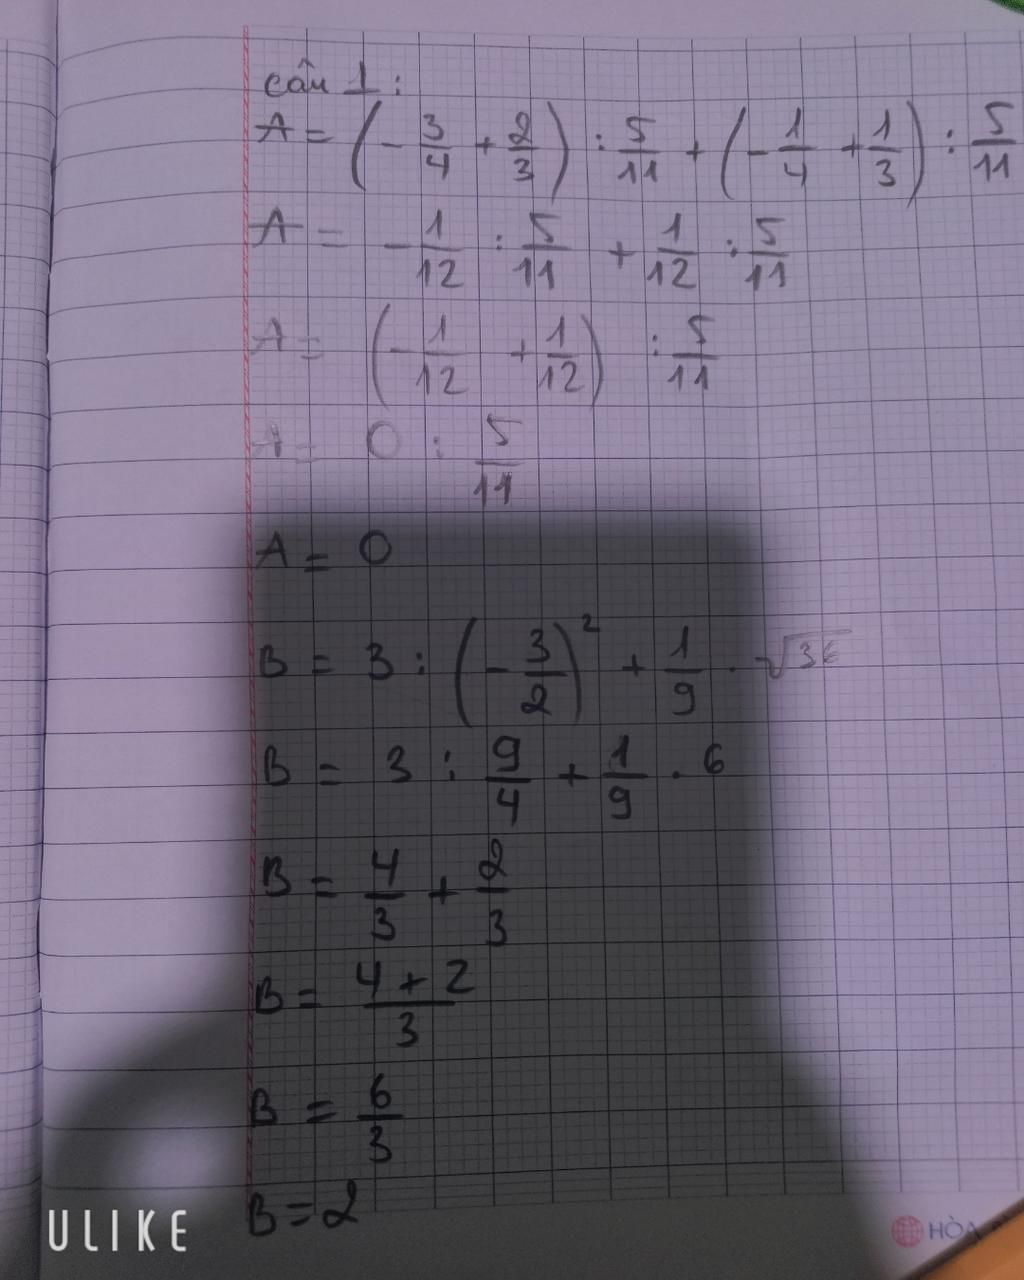 câu 1:
A = (-3/4 + 2/3) : 5/11 + (-1/4 + 1/3) : 5/11
A = -1/12 : 5/11 + 1/12 : 5/11
A = (-1/12 + 1/12) : 5/11
A = 0 : 5/11
A = 0
B = 3 : (-3/2)² + 1/9 . √36
B = 3 : 9/4 + 1/9 . 6
B = 4/3 + 2/3
B = (4 + 2)/3
B = 6/3
B = 2
ULIKE
HÒA